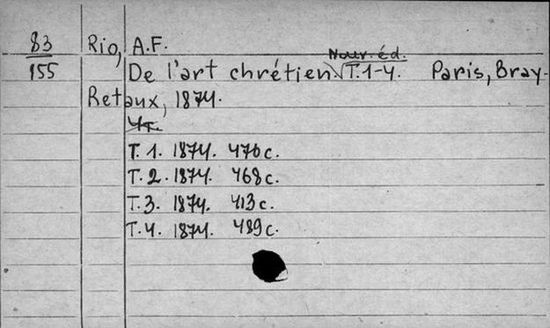 83 Rio, A.F.
Nouv. éd.
155 De l'art chrétien √ T.1-4. Paris, Bray-
Retaux, 1874.
4т.
T. 1. 1874. 476 c.
T. 2. 1874. 468 c.
T. 3. 1874. 413 c.
T. 4. 1874. 489 c.